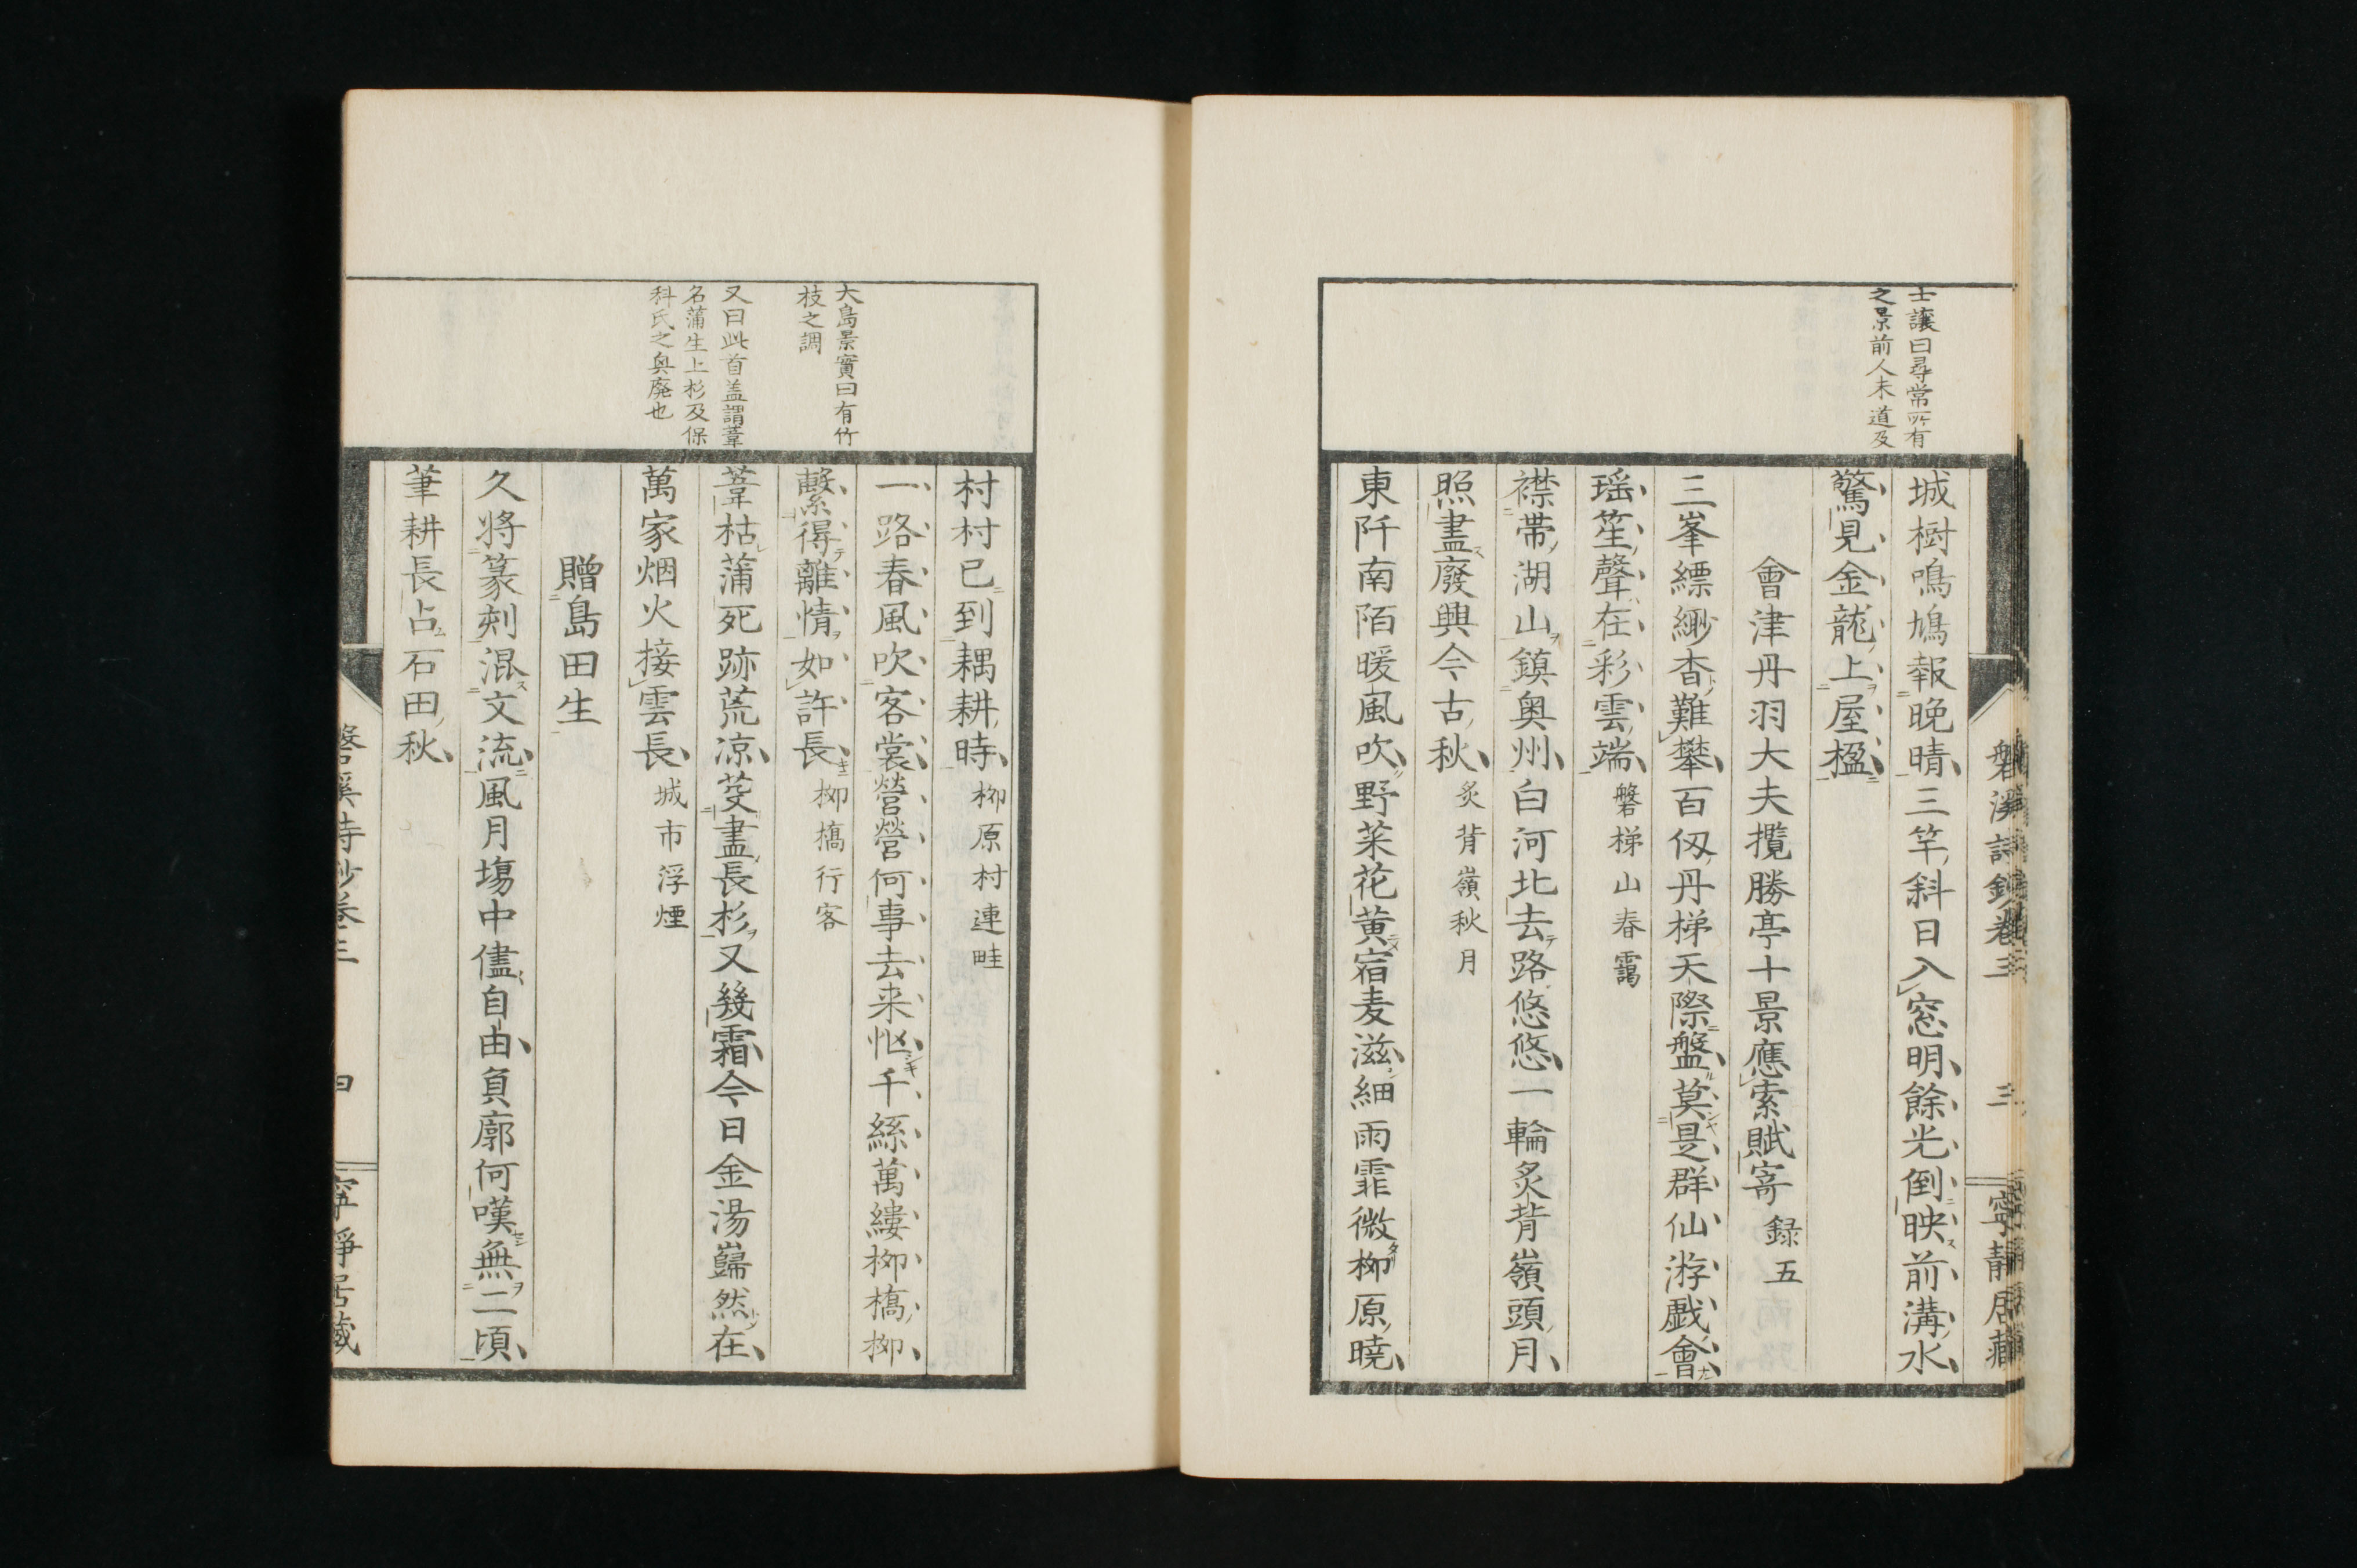 士讓曰尋常所有
之景前人未道及
城樹鳴鳩報晩晴三竿斜日入窓明餘光倒映前溝水
驚見金龍上屋楹
會津丹羽大夫攬勝亭十景應索賦寄 録五
三峯縹緲杳難攀百仭丹梯天際盤莫是群仙游戯會
瑶笙聲在彩雲端 磐梯山春靄
襟帶湖山鎮奥州白河北去路悠悠一輪炙背嶺頭月
照盡廢興今古秋 炙背嶺秋月
東阡南陌暖風吹野菜花黄宿麦滋細雨霏微柳原曉
磐溪詩鈔卷三 三 寧靜居藏
大島景實曰有竹
枝之調
又曰此首盖謂葦
名蒲生上杉及保
科氏之興廢也
村村已到耦耕時 柳原村連畦
一路春風吹客裳營營何事去来忙千絲萬縷柳橋柳
繫得離情如許長 柳橋行客
葦枯蒲死跡荒凉芟盡長杉又幾霜今日金湯巋然在
萬家烟火接雲長 城市浮煙
贈島田生
久將篆刻混文流風月塲中儘自由負廓何嘆無二頃
筆耕長占石田秋
磐溪詩鈔卷三 四 寧靜居藏